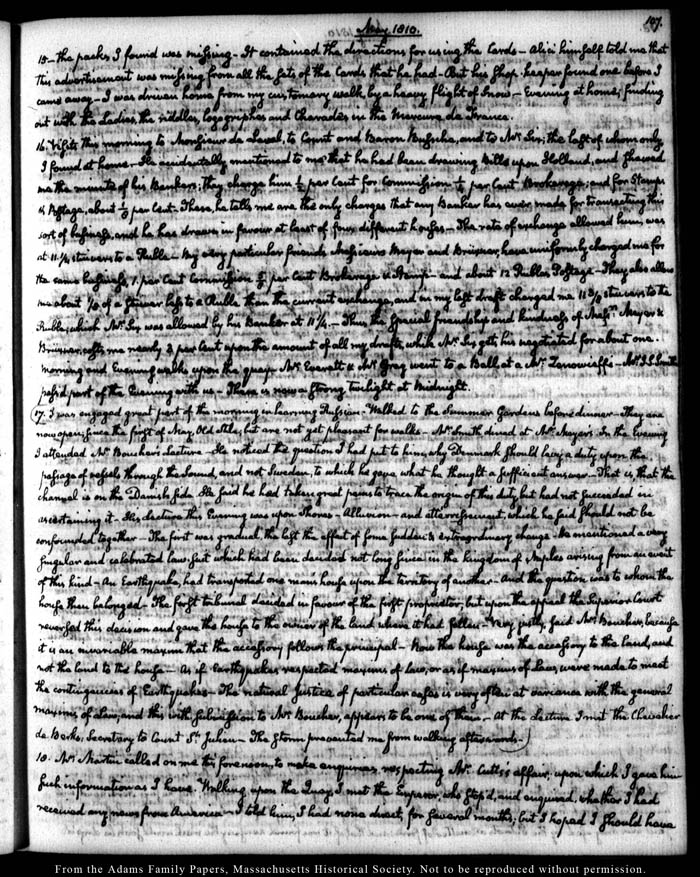 May 1810.
107.
15 — the packs, I found was missing — It contained the directions for using the Cards — Alici himself told me that
this advertisement was missing from all the sets of the Cards that he had — But his Shop-keeper found one before I
came away — I was driven home from my customary walk by a heavy flight of Snow — Evening at home; finding
out with the Ladies, the riddles, logogryphes and Charades, in the Mercure de France.
16. Visits this morning to Monsieur de Laval, to Count and Baron Bussche, and to Mr. Six; the last of whom only,
I found at home — He accidentally mentioned to me that he had been drawing Bills upon Holland, and shewed
me the minute of his Bankers; They charge him ½ per Cent for Commission per Cent Brokerage, and for Stamps
& Postage, about per Cent — These, he tells me are the only charges that any Banker has ever made for transacting this
sort of business, and he has drawn in favour at least of four different houses — The rate of exchange allowed him was
at 11¼ stuivers to a Ruble — My very particular friends Messieurs Meyer and Brüxner, have uniformly charged me for
the same business, 1. per Cent Commission per Cent Brokerage & Stamps — and about 12 Rubles Postage — They also allow
me about of a stuiver less to a Ruble than the current exchange, and in my last draft charged me 11 stuivers to the
Ruble, which Mr. Six was allowed by his Banker at 11¼ — Thus the special friendship and kindness of Messrs. Meyer &
Brüxner, costs me nearly 3 per Cent upon the amount of all my drafts, which Mr. Six gets his negotiated for about one.
Morning and Evening walks upon the quay. Mr. Everett & Mr. Gray went to a Ball at a Mr. — Mr. J. S. Smith
pass'd part of the Evening with us — There is now a strong twilight at Midnight.
17. I was engaged great part of the morning in learning Russian — Walked to the Summer Gardens before dinner — They are
now open, since the first of May, Old Stile, but are not yet pleasant for walks — Mr. Smith dined at Mr. Meyer's. In the Evening
I attended Mr. Boucher's Lecture — He noticed the question I had put to him, why Denmark should levy a duty upon the
passage of vessels through the Sound, and not Sweden, to which he gave what he thought a sufficient answer — That is, that the
channel is on the Danish side. He said he had taken great pains to trace the origin of this duty, but had not succeeded in
ascertaining it — His Lecture this Evening was upon Shores — Alluvion — and atterrissement, which he said should not be
confounded together — The first was gradual, the last the effect of some sudden & extraordinary change — He mentioned a very
singular and celebrated law-suit which had been decided not long since in the kingdom of Naples arising from an event
of this kind — An Earthquake, had transported one man's house upon the territory of another — And the question was to whom the
house then belonged — The first tribunal decided in favour of the first proprietor, but upon the appeal the Superior Court
reversed this decision and gave the house to the owner of the land where it had fallen — Very justly, said Mr. Boucher, because
it is an invariable maxim that the accessory follows the principal — Now the house was the accessory to the land, and
not the land to the house — As if Earthquakes respected maxims of law, or as if maxims of Law, were made to meet
the contingencies of Earthquakes — The natural justice of particular cases is very often at variance with the general
maxims of Law, and this with submission to Mr. Boucher, appears to be one of them — At the Lecture I met the Chevalier
de Berks, Secretary to Count St. Julien — The storm prevented me from walking afterwards.
18. Mr. Martin called on me this forenoon, to make enquiries respecting Mr. Cutts's affair, upon which I gave him
such information as I have. Walking upon the Quay, I met the Emperor, who stop'd, and enquired, whether I had
received any news from America — I told him, I had none direct, for several months; but I hoped I should have
From the Adams Family Papers, Massachusetts Historical Society. Not to be reproduced without permission.